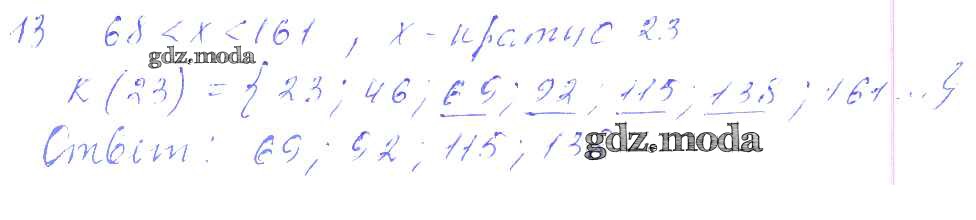 13 68 < x < 161 , x - кратно 23
gdz.moda
K (23) = { 23 ; 46 ; 69 ; 92 ; 115 ; 138 ; 161 ... }
Ответ : 69 ; 92 ; 115 ; 138
gdz.moda